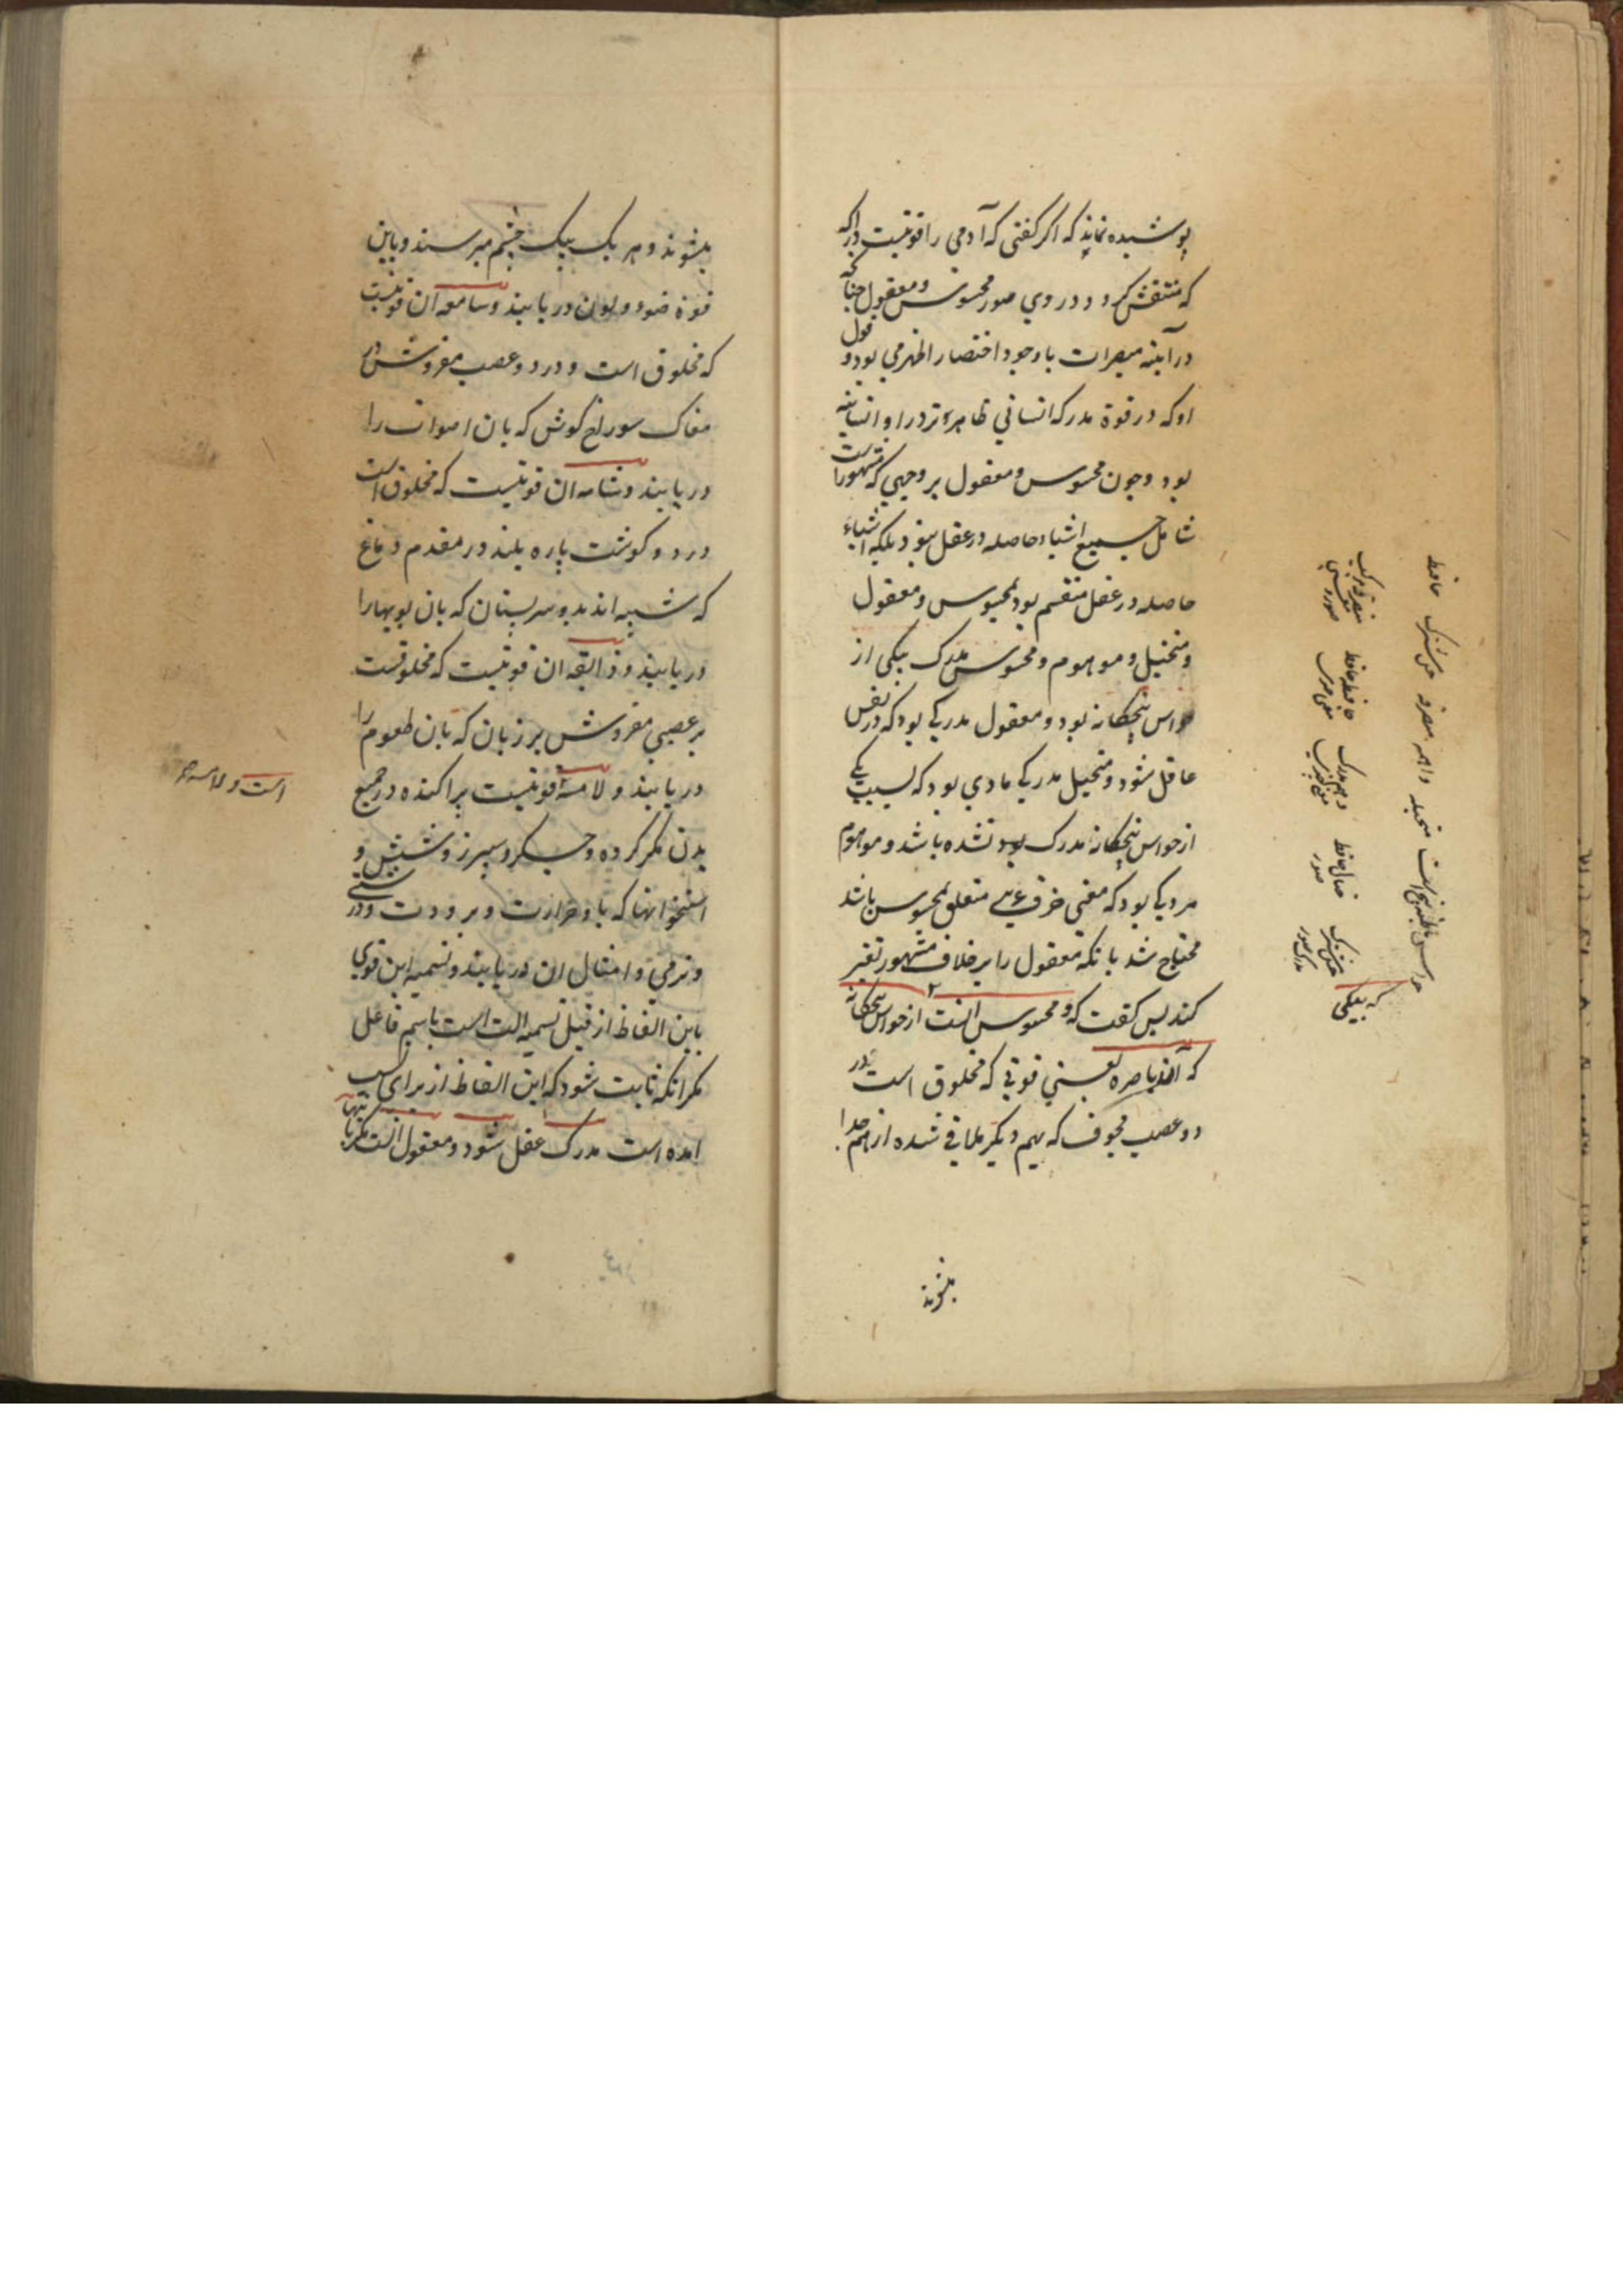 پوشیده نماند که اگر گفتی که آدمی را قوتیست دراکه
که منتقش گردد در وی صور محسوس و معقول چنانکه
در آینه مبصرات با وجود اختصار اظهر می بود و قول
او که در قوة مدرکه انسانی ظاهرتر در او انسانیه
بود و چون محسوس و معقول بر وجهی که مشهور است
شامل جمیع اشیاء حاصله در عقل نبود بلکه اشیاء
حاصله در عقل منقسم بود بمحسوس و معقول
و متخیل و موهوم و محسوس مدرک بیکی از
حواس پنجگانه بود و معقول مدرکی بود که در نفس
عاقل شود و متخیل مدرکی مادی بود که بسبب یکی
از حواس پنجگانه مدرک نشده باشد و موهوم
مدرکی بود که معنی جزئی متعلق بمحسوس باشد
محتاج شد بانکه معقول را بر خلاف مشهور تفسیر
کند پس گفت که و محسوس آنست از حواس پنجگانه
که آن باصره یعنی قوتی که مخلوق است در
دو عصب مجوف که بهم دیگر ملاقی شده از هم جدا
بشوند
که بیکی
حس مشترک
خیال حافظ صور
حافظه حافظ
متخیله واهمه متصرفه حس مشترک حافظه
بشوند و هر یک بیک چشم میرسند و باین
قوة ضوء و لون دریابند و سامعه آن قوتیست
که مخلوق است و در دو عصب مفروش در
مغاک سوراخ گوش که بان اصوات را
دریابند و شامه آن قوتیست که مخلوق است
در دو گوشت پاره بلند در مقدم دماغ
که شبیه اند بدو سر پستان که بان بویها را
دریابند و ذایقه آن قوتیست که مخلوقست
بر عصبی مفروش بر زبان که بان طعوم را
دریابند و لامسه قوتیست پراکنده در جمیع
بدن مگر گرده و جگر و سپرز و شش و
استخوانها که باو حرارت و برودت و درشتی
و نرمی و امثال آن دریابند و تسمیه این قوی
باین الفاظ از قبیل تسمیه آلت است باسم فاعل
مگر آنکه ثابت شود که این الفاظ از برای نسب
آمده است مدرک عقل شود و معقول آنست که
است و لامسه